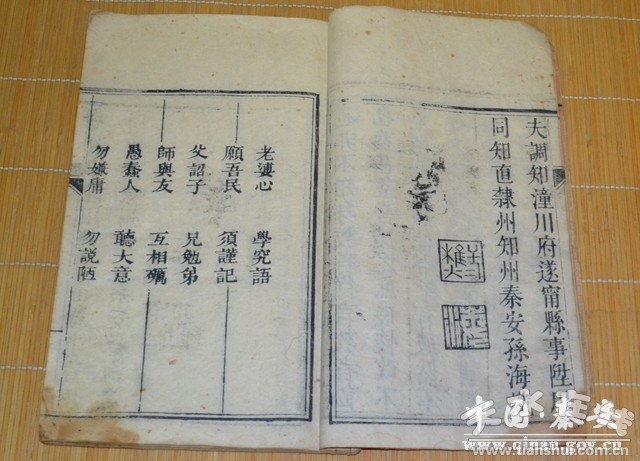 夫調知潼川府遂甯縣事陞用
同知直隸州知州秦安孫海
老婆心 學究語
願吾民 須謹記
父詔子 兄勉弟
師與友 互相礪
愚蠢人 聽大意
勿嫌庸 勿說陋
中国秦安
www.qinan.gov.cn
www.tianshui.com.cn